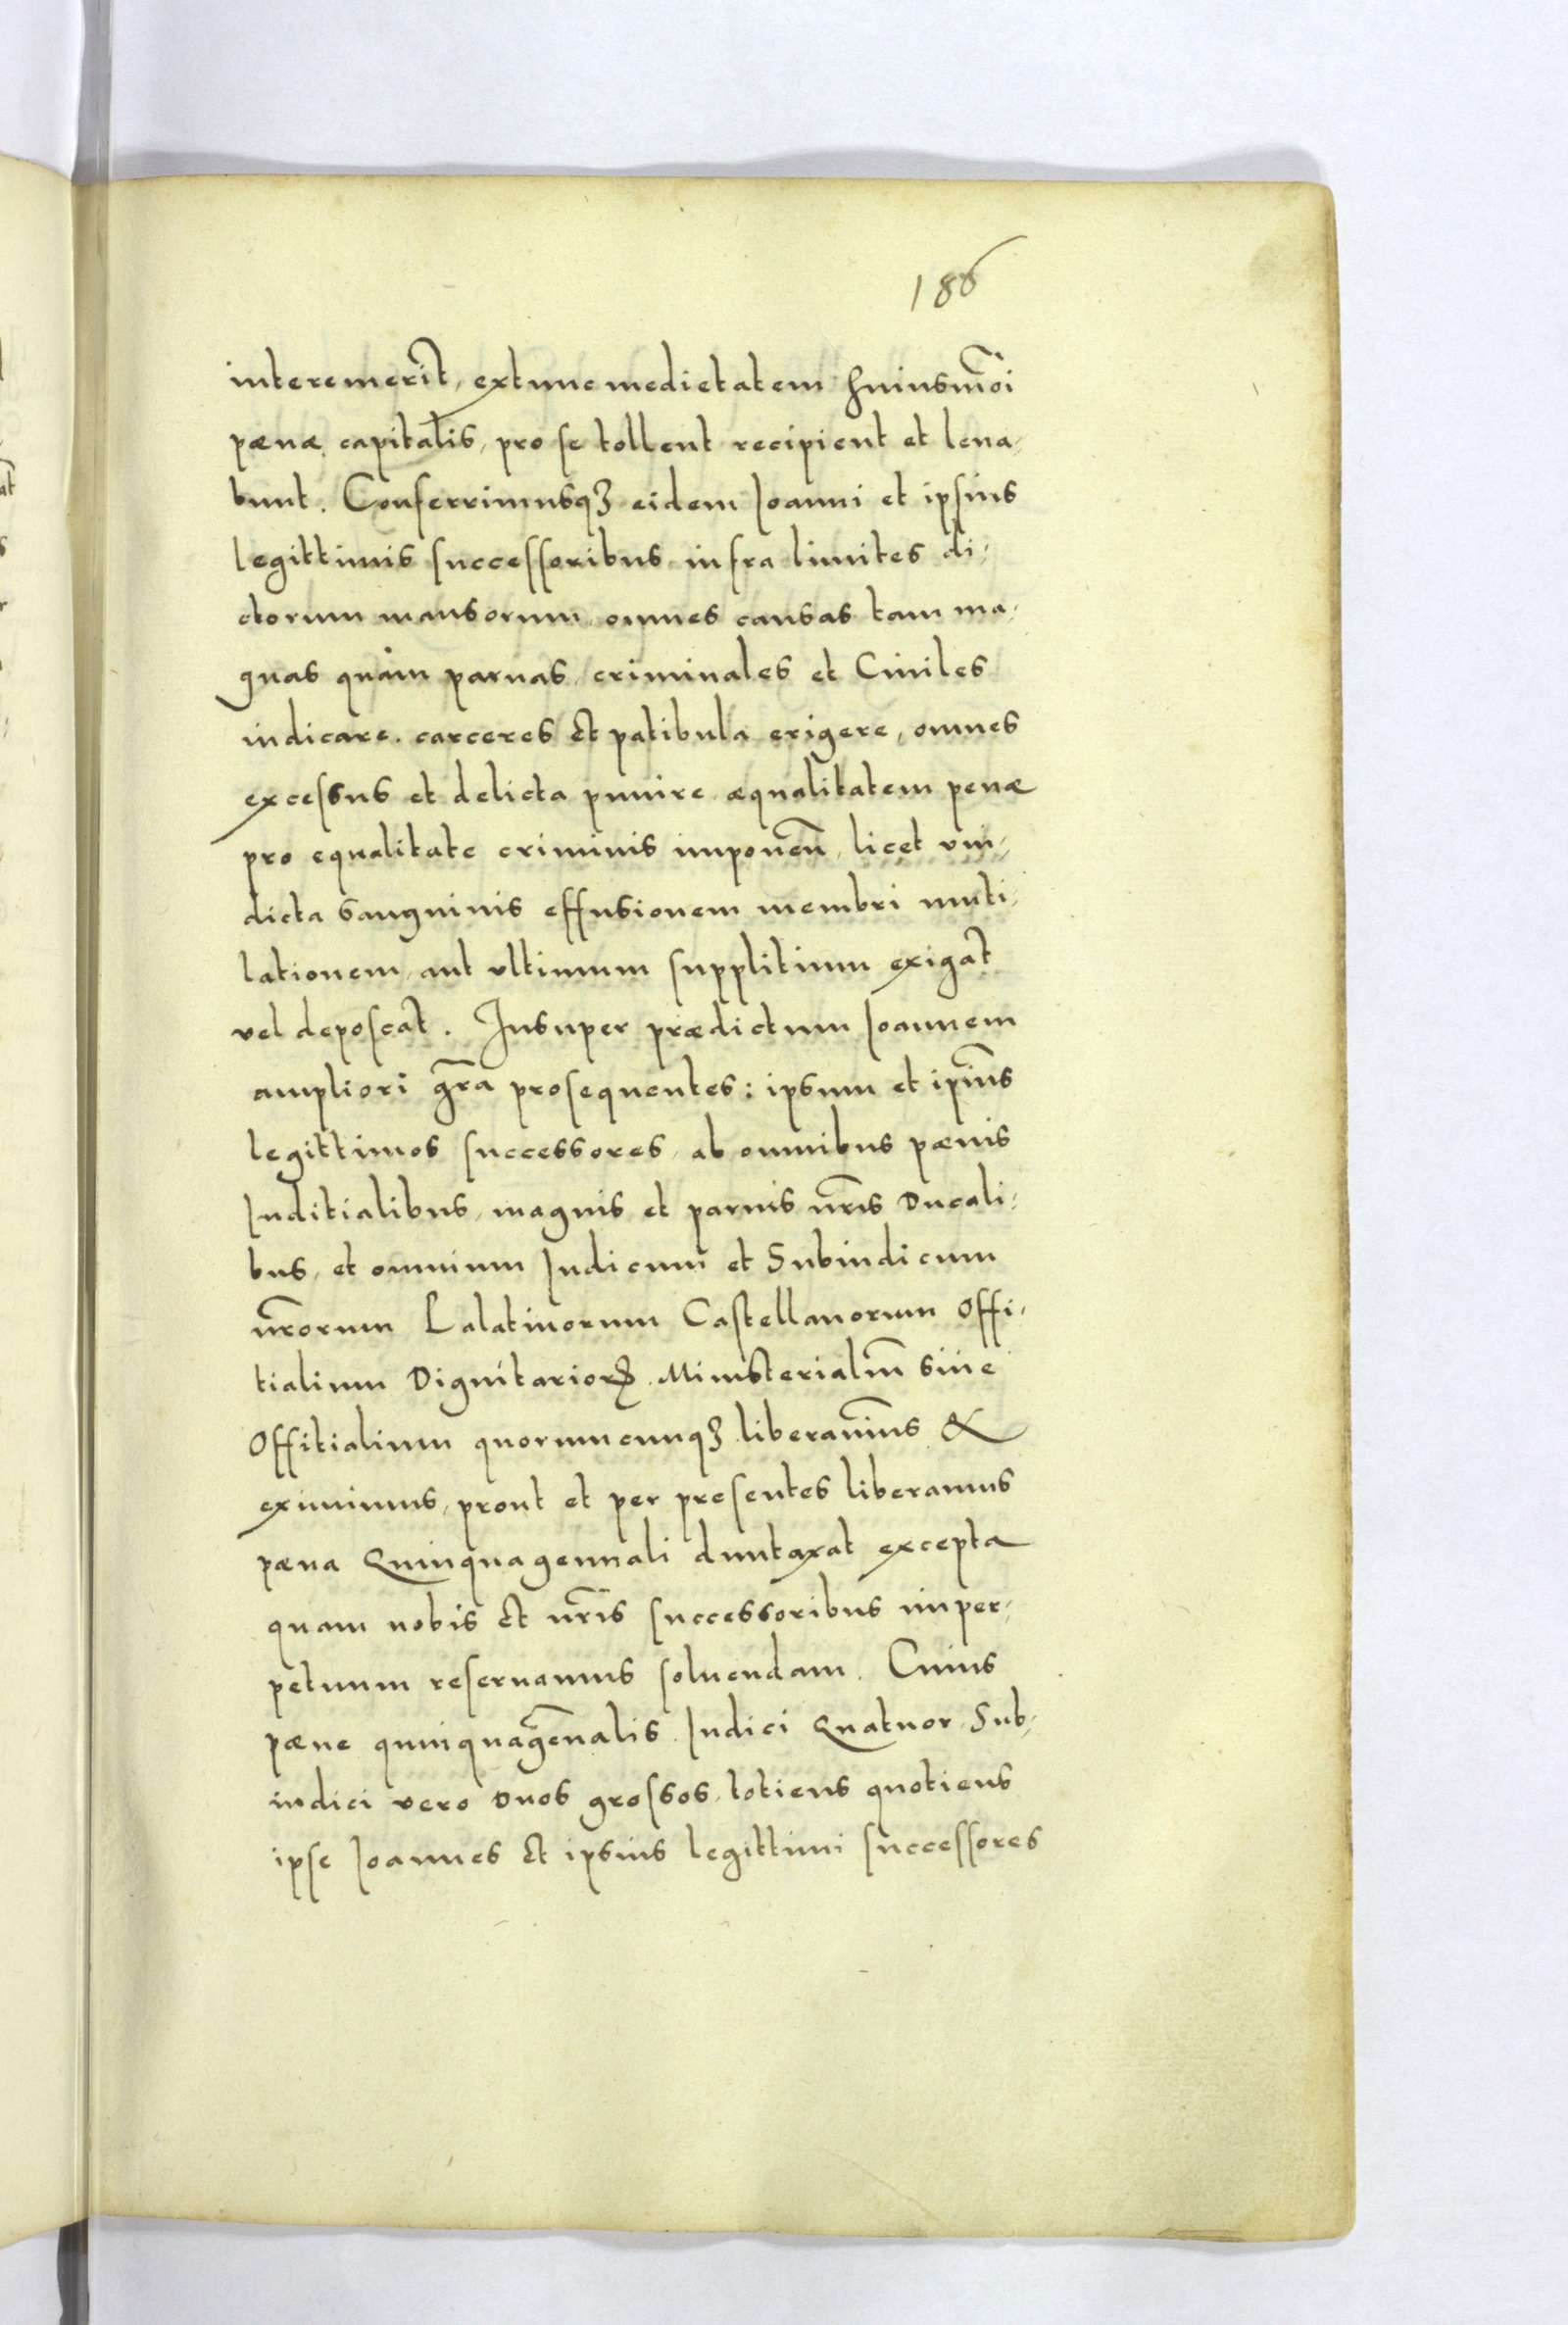 186
interemerĩt, extunc medietatem huiusm̃oi
pænæ capitalis, pro se tollent recipient et leua-
bunt. Conferrimusqꝫ eidem Ioanni et ipsius
legittimis successoribus infra limites di-
ctorum mansorum, omnes causas tam ma-
gnas quàm paruas, criminales et Ciuiles
iudicare. carceres et patibula erigere, omnes
excessus et delicta punire æqualitatem penæ
pro equalitate criminis imponeñ, licet vin-
dicta sanguinis effusionem membri muti-
lationem, aut vltimum supplitium exigat̃
vel deposcat̃. Insuper prædictum Ioannem
ampliori gr̃a prosequentes: ipsum et ip̃ius
legittimos successores, ab omnibus pænis
Iuditialibus, magnis et paruis nr̃is Ducali-
bus, et omnium Iudicum et Subiudicum
nr̃orum Palatinorum Castellanorum Offi-
tialium Dignitarioꝝ. Ministerialiũ siue
Offitialium quorumcunqꝫ liberauim̃us &
eximimus, prout et per presentes liberamus
pæna Quinquagennali duntaxat excepta
quam nobis et nr̃is successoribus imper-
petuum reseruamus soluendam. Cuius
pæne quinquageñalis Iudici Quatuor, Sub-
iudici vero Duos grossos, totiens quotiens
ipse Ioannes et ipsius legittimi successores